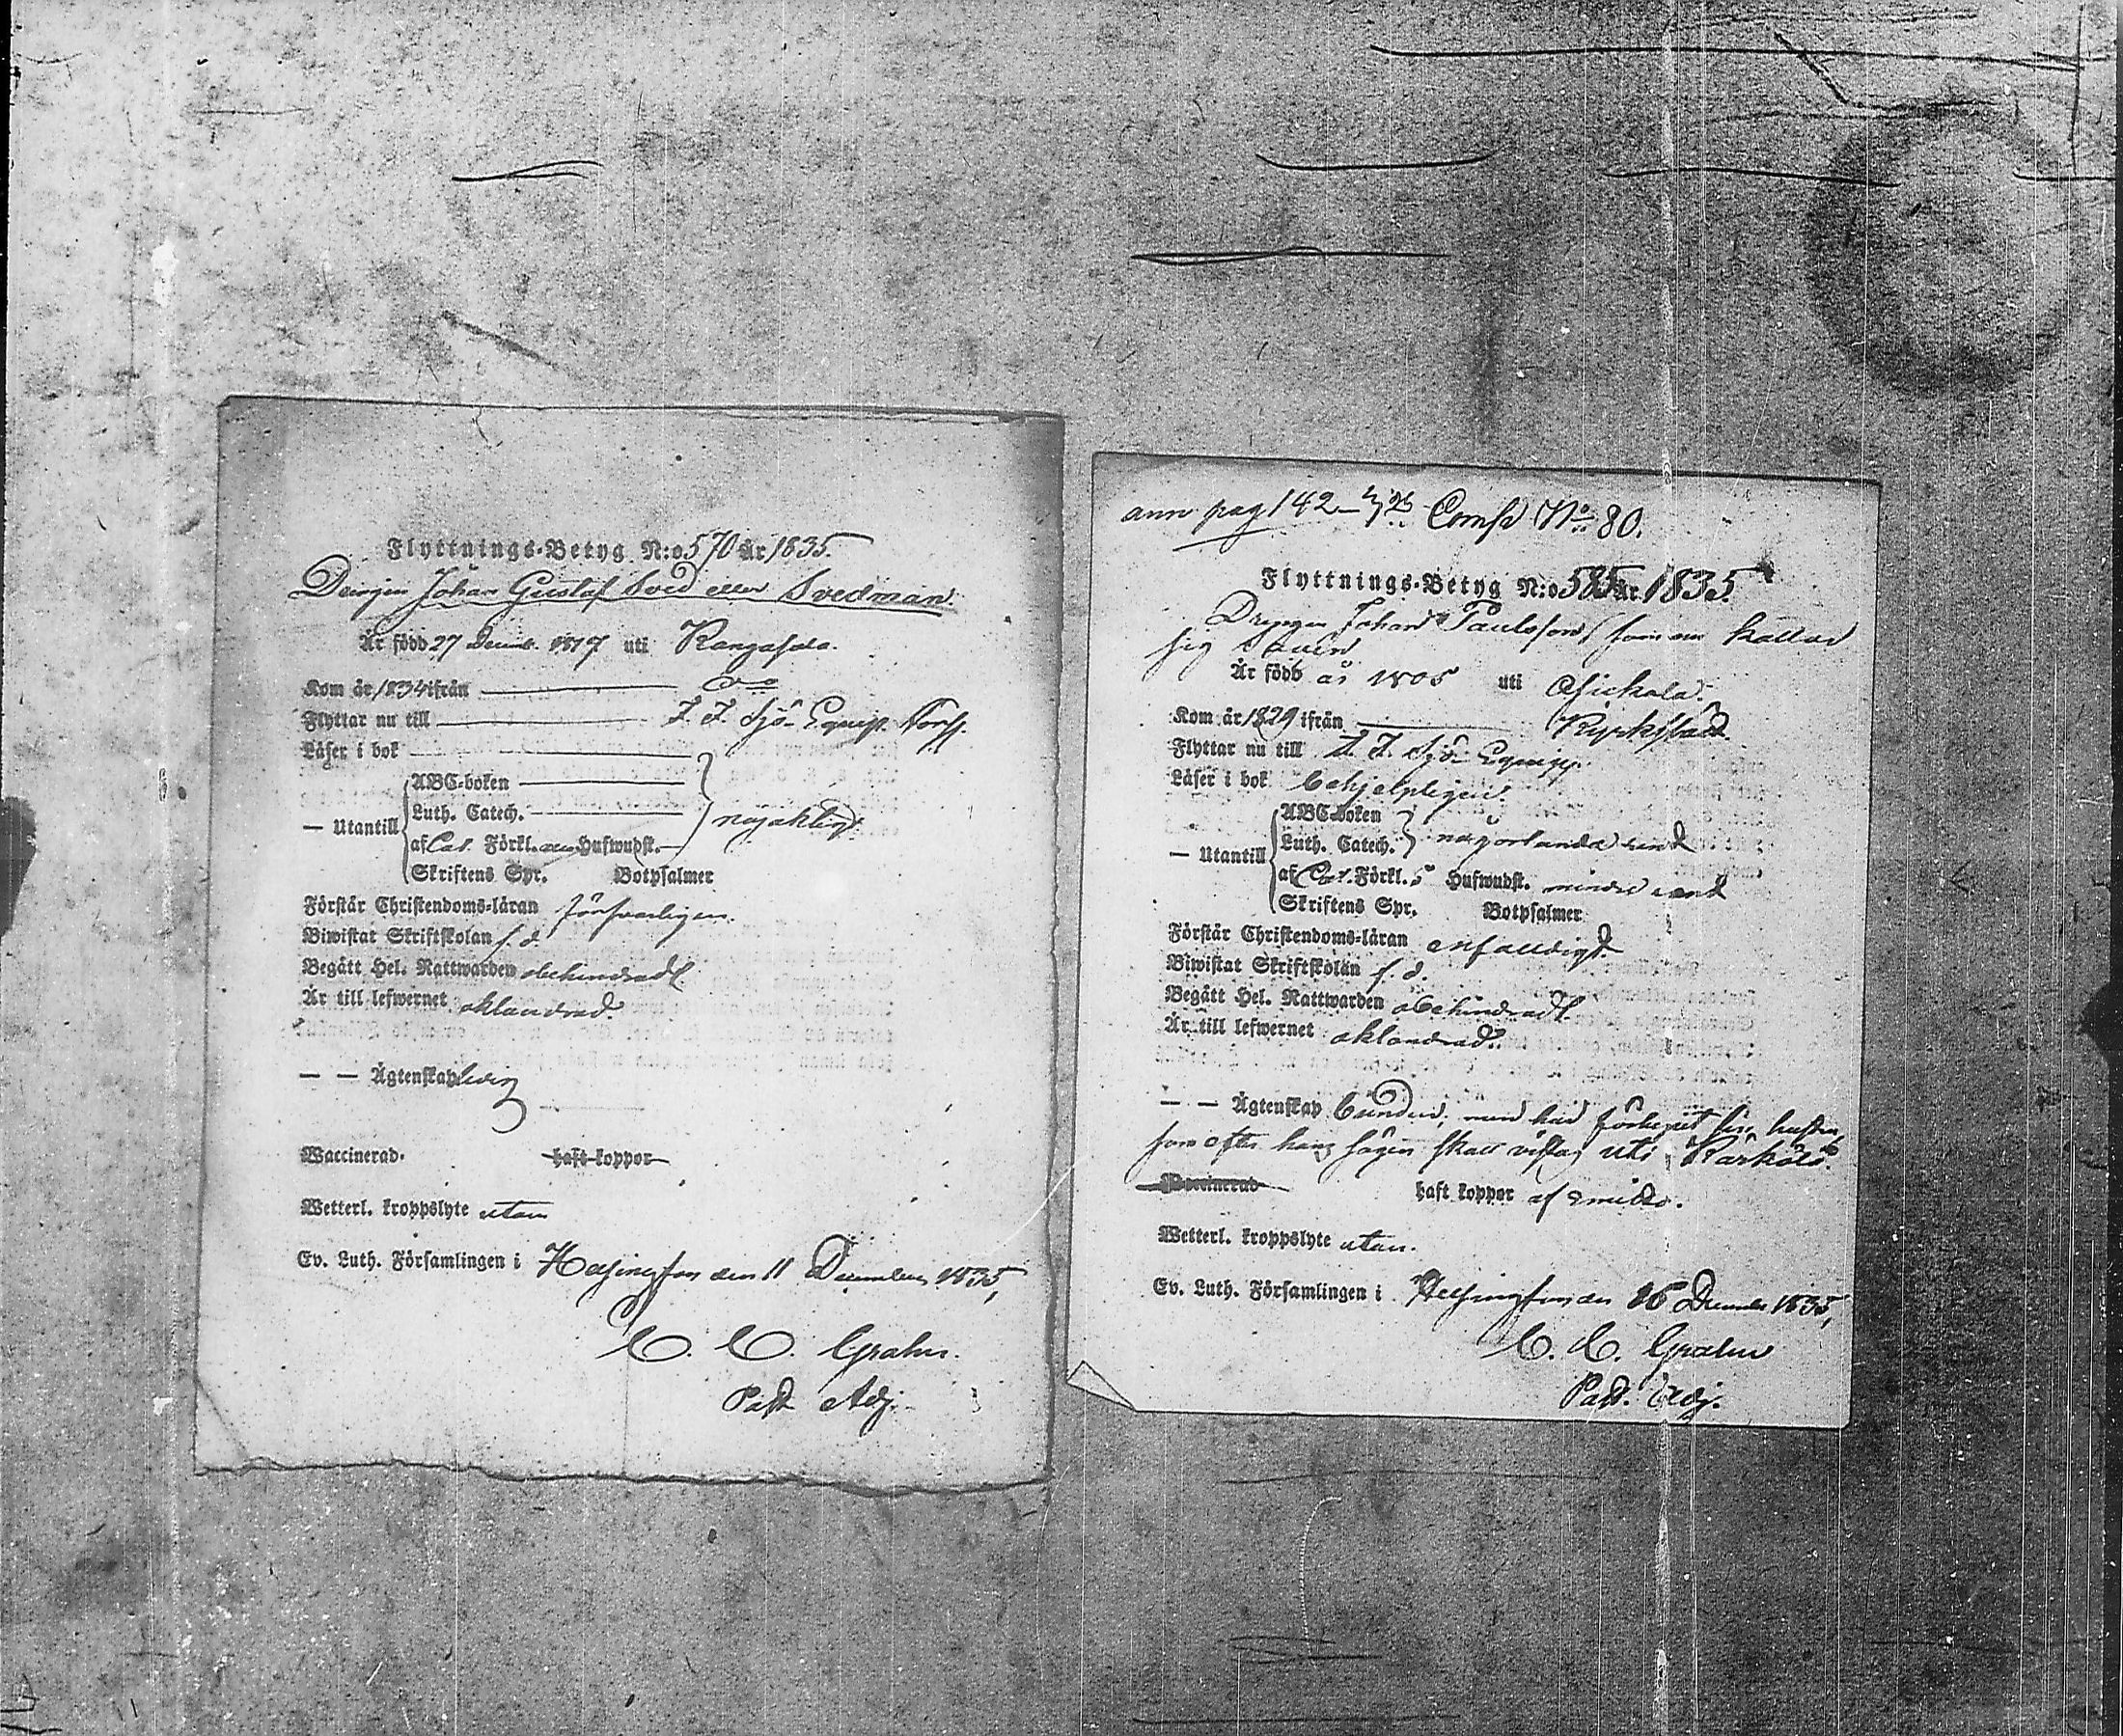 Flyttnings-Betyg N:o 570 År 1835.
Drängen Johan Gustaf Sved eller Svedman.
Är född 27 Decemb. 1817 uti Kangasala.
Kom år 1834 ifrån
Flyttar nu till F. F. Sjö-Equip.
Läser i bok
ABC-boken
Luth. Catech.
— Utantill
af Förkl. Hufwudst.
nöjaktigt
Skriftens Spr. Botpsalmer
Förstår Christendoms-läran försvarligen
Biwistat Skriftskolan f. d.
Begått Hel. Nattwarden obehindradt
Är till lefwernet oklandrad.
— — Ägtenskap ledig
Waccinerad. haft koppor
Wetterl. kroppslyte utan
Ev. Luth. Församlingen i Helsingfors den 11 December 1835,
C. C. Grahn.
Past. Adj.
ann pag 142 Comp N:o 80.
Flyttnings-Betyg N:o 585 År 1835.
Drängen Johan Paulsson, som kallar
sig
Är född år 1805 uti Asickala.
Kom år 1829 ifrån Kyrkslätt
Flyttar nu till F. F. Sjö-Equip.
Läser i bok behjelpligen.
ABC-boken
Luth. Catech.
någorlunda
— Utantill
af Förkl. 5 Hufwudst. mindre
Skriftens Spr. Botpsalmer
Förstår Christendoms-läran enfaldigt
Biwistat Skriftskolan f. d.
Begått Hel. Nattwarden obehindradt
Är till lefwernet oklandrad.
— — Ägtenskap bunden, men har sin hustru,
som efter hans sägen skall vistas uti Kärkölä.
Waccinerad haft koppor af
Wetterl. kroppslyte utan.
Ev. Luth. Församlingen i Helsingfors den 16 December 1835,
C. C. Grahn
Past. Adj.